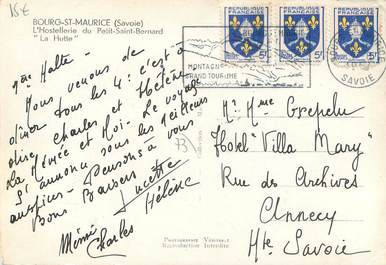 15€
BOURG-ST-MAURICE (Savoie)
L'Hostellerie du Petit-Saint-Bernard
" La Hutte "
REPUBLIQUE FRANÇAISE
REPUBLIQUE FRANÇAISE
REPUBLIQUE FRANÇAISE
5F
MONTAGN
GRAND TOURISME
SAVOIE
1ère Halte -
Nous venons de
dîner tous les 4 : c'est à
dire Charles et Hélène
La Mémée et Moi - Le voyage
s'annonce sous les meilleurs
auspices - Pensons à vous
Bons Baisers
Lucette
Mémé
Charles
Hélène
73
Mr Mme Crepelu
Hotel "Villa Mary"
Rue des Archives
Annecy
Hte Savoie
Photographie Véritable
Reproduction Interdite